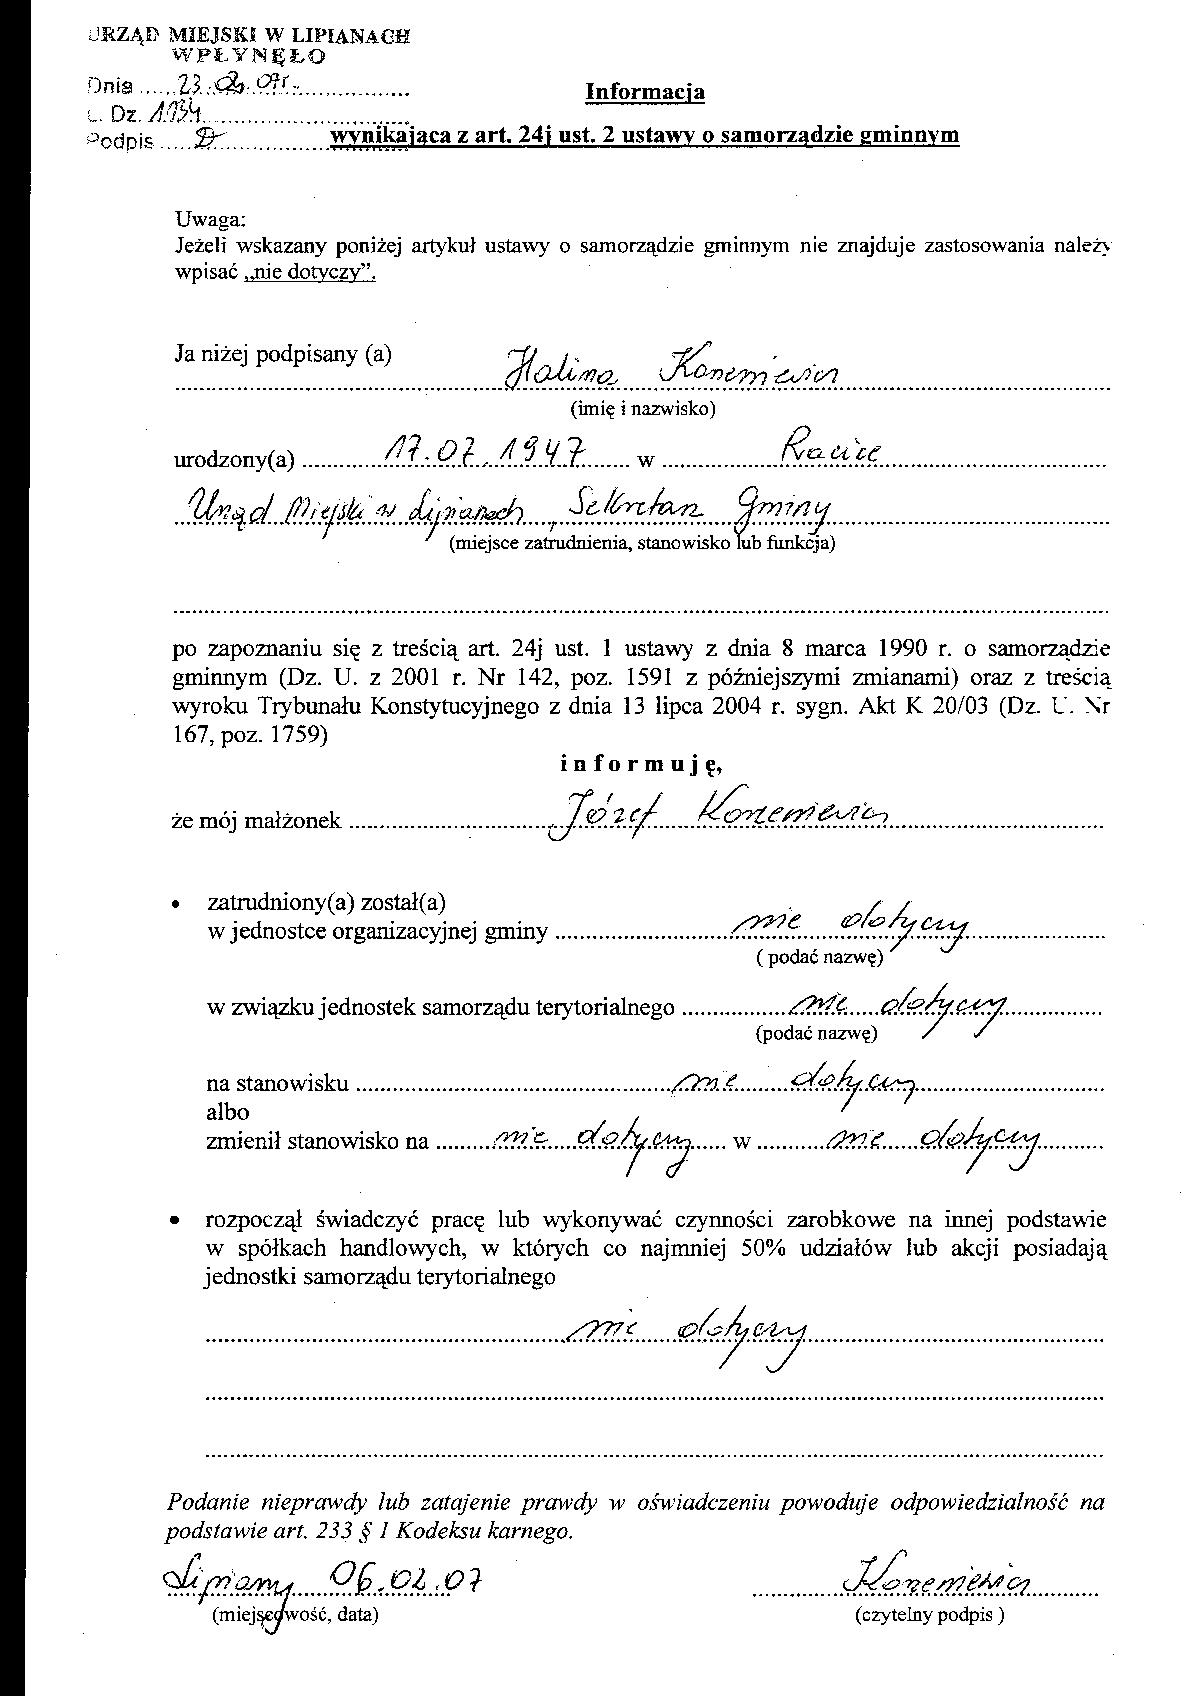 URZĄD MIEJSKI W LIPIANACH
WPŁYNĘŁO
Dnia ..... 23.02.07r. ..................
L. Dz. 1134 ..............................
Podpis ..........................
Informacja
wynikająca z art. 24j ust. 2 ustawy o samorządzie gminnym
Uwaga:
Jeżeli wskazany poniżej artykuł ustawy o samorządzie gminnym nie znajduje zastosowania należy
wpisać „nie dotyczy”.
Ja niżej podpisany (a)
Halina Korzeniewicz
(imię i nazwisko)
urodzony(a) ............ 17.07.1947 ........ w ................... Racice
Urząd Miejski w Lipianach, Sekretarz Gminy
(miejsce zatrudnienia, stanowisko lub funkcja)
po zapoznaniu się z treścią art. 24j ust. 1 ustawy z dnia 8 marca 1990 r. o samorządzie
gminnym (Dz. U. z 2001 r. Nr 142, poz. 1591 z późniejszymi zmianami) oraz z treścią
wyroku Trybunału Konstytucyjnego z dnia 13 lipca 2004 r. sygn. Akt K 20/03 (Dz. U. Nr
167, poz. 1759)
informuję,
że mój małżonek .................................. Józef Korzeniewicz
• zatrudniony(a) został(a)
w jednostce organizacyjnej gminy .............................. nie dotyczy
( podać nazwę)
w związku jednostek samorządu terytorialnego .................. nie dotyczy
(podać nazwę)
na stanowisku .................................................... nie dotyczy
albo
zmienił stanowisko na .......... nie dotyczy ...... w ........... nie dotyczy
• rozpoczął świadczyć pracę lub wykonywać czynności zarobkowe na innej podstawie
w spółkach handlowych, w których co najmniej 50% udziałów lub akcji posiadają
jednostki samorządu terytorialnego
nie dotyczy
Podanie nieprawdy lub zatajenie prawdy w oświadczeniu powoduje odpowiedzialność na
podstawie art. 233 § 1 Kodeksu karnego.
Lipiany 06.02.07 Korzeniewicz
(miejscowość, data) (czytelny podpis )